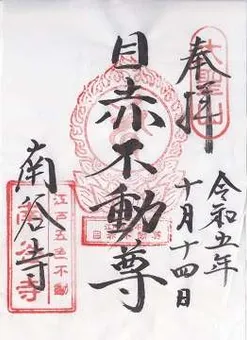 奉拝
令和五年
十月十四日
目赤不動尊
南谷寺
江戸五色不動
南谷寺